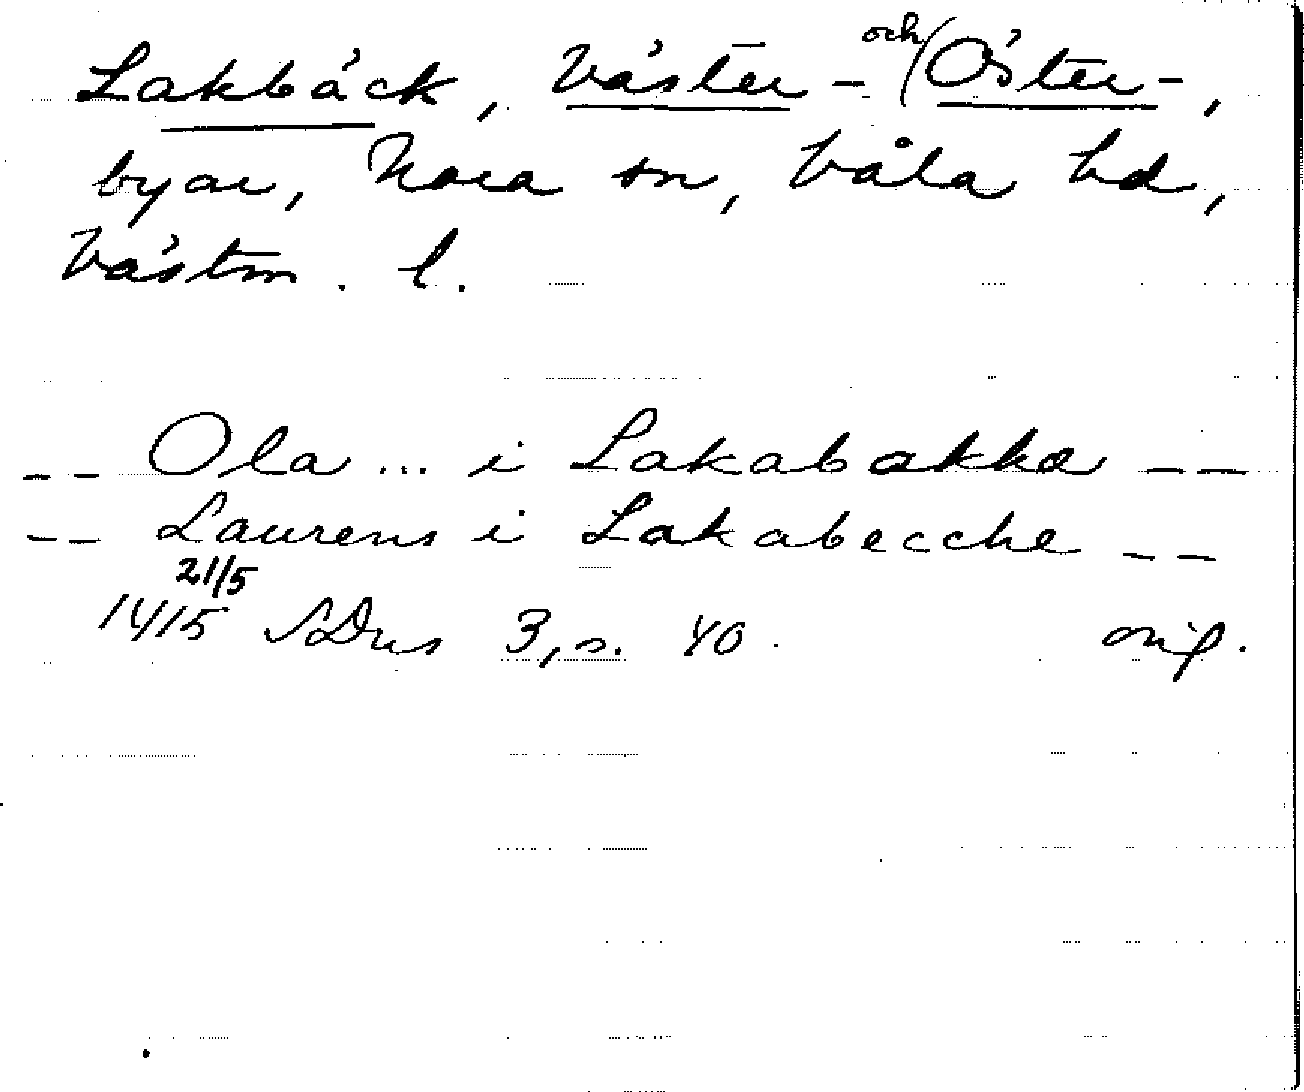 Lakbäck, Väster- och Öster-,
byar, Nora sn, Våla hd,
Västm. l.
-- Ola ... i Lakabakka --
-- Laurens i Lakabecche --
21/5
1415 SDns 3, s. 40. orig.